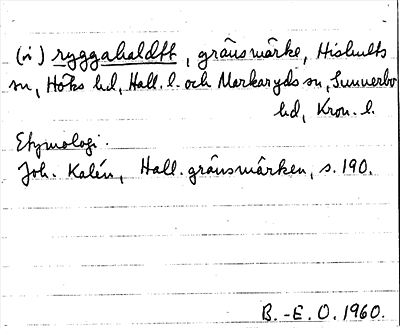 (i) ryggahaldtt, gränsmärke, Hishults
sn, Höks hd, Hall. l. och Markaryds sn, Sunnerbo
hd, Kron. l.
Etymologi.
Joh. Kalén, Hall. gränsmärken, s. 190.
B.-E. O. 1960.